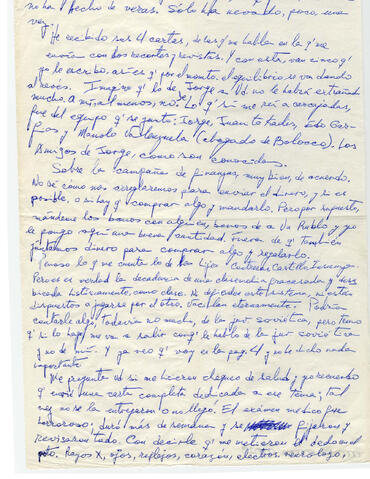 no ha hecho de veras. Sólo ha nevado, poco, una
vez.
He recibido sus 4 cartas, de las q' me hablan en la q' me
envía con dos recortes y revistas. Y con esta, van cinco q'
yo le escribo, así es q' por el momento el equilibrio se va dando
a veces. Imagino q' lo de Jorge a Ud. no le habrá extrañado
mucho, a mí, al menos, no. Lo q' si me reí a carcajadas,
fue del equipo q' se juntó: Jorge, Juanito
y Manolo Valenzuela (abogado de Bolocco). Los
Amigos de Jorge, como son conocidos.
Sobre la campaña de finanzas, muy bien, de acuerdo.
No sé como nos arreglaremos para enviar el dinero, y si es
posible, o si hay q' comprar algo y mandarlo. Pero por supuesto,
mándeme los bonos con alguien, bonos de a Un Rublo y yo
le pongo aquí una buena cantidad. Fuera de q' también
juntamos dinero para comprar algo y regalarlo.
Penoso lo q' me cuenta lo de las hijas Contreras Castillo,
Pero es verdad la decadencia de una clase media fracasada y
ubicada históricamente, como clase. Ni
dispuestos a jugarse por el otro. Vacilan eternamente. Podría
contarle algo, todavía no mucho, de la juv. soviética, pero temo
q' si lo hago me va a salir conq' le hablo de la juv. soviética
y no de mí. Y ya veo q' voy en la pag. 4 y no le he dicho nada
importante.
Me pregunta Ud si me hicieron chequeo de salud, yo recuerdo
q' envié una carta completa dedicada a ese tema; tal
vez no se la entregaron o no llegó. El exámen médico fue
horroroso, duró más de 1 semana y se fijaron y
revisaron todo. Con decirle q' me metieron el dedo en el
poto. Rayos X, ojos, reflejos, corazón, electros,